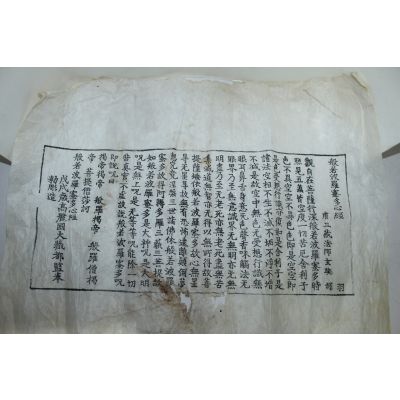 般若波羅蜜多心經
唐三藏法師玄奘 譯 羽
觀自在菩薩行深般若波羅蜜多時
照見五蘊皆空度一切苦厄舍利子
色不異空空不異色色即是空空即
是色受想行識亦復如是舍利子是
諸法空相不生不滅不垢不淨不增
不減是故空中無色無受想行識無
眼耳鼻舌身意無色聲香味觸法無
眼界乃至無意識界無無明亦無無
明盡乃至無老死亦無老死盡無苦
集滅道無智亦無得以無所得故菩
提薩埵依般若波羅蜜多故心無罣
礙無罣礙故無有恐怖遠離顛倒夢
想究竟涅槃三世諸佛依般若波羅
蜜多故得阿耨多羅三藐三菩提故
知般若波羅蜜多是大神呪是大明
呪是無上呪是無等等呪能除一切
苦眞實不虛故說般若波羅蜜多呪
即說呪曰
揭帝揭帝 般羅揭帝 般羅僧揭
帝 菩提僧莎訶
般若波羅蜜多心經
戊戌歲高麗國大藏都監奉
勅雕造